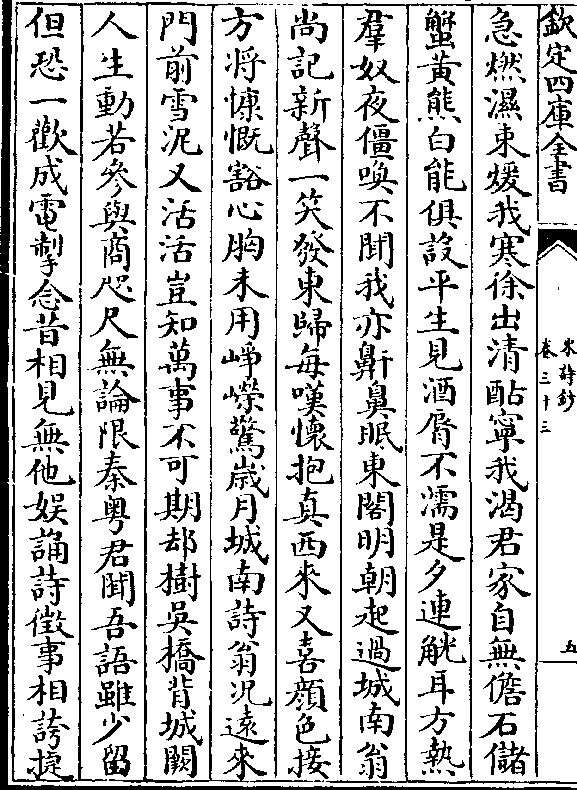 欽定四庫全書
宋詩鈔
卷三十三
五
急燃濕束煖我寒徐出清酤寧我渴君家自無儋石儲
蟹黃熊白能俱設平生見酒脣不濡是夕連觥耳方熱
羣奴夜僵喚不聞我亦鼾鼻眠東閣明朝起過城南翁
尚記新聲一笑發東歸每嘆懷抱真西來又喜顔色接
方将慷慨豁心胸未用崢嶸驚歲月城南詩翁况遠來
門前雪泥又活活豈知萬事不可期却樹吳橋背城闕
人生動若參與商咫尺無論限秦粤君聞吾語雖少留
但恐一歡成電掣念昔相見無他娱誦詩徵事相誇捷